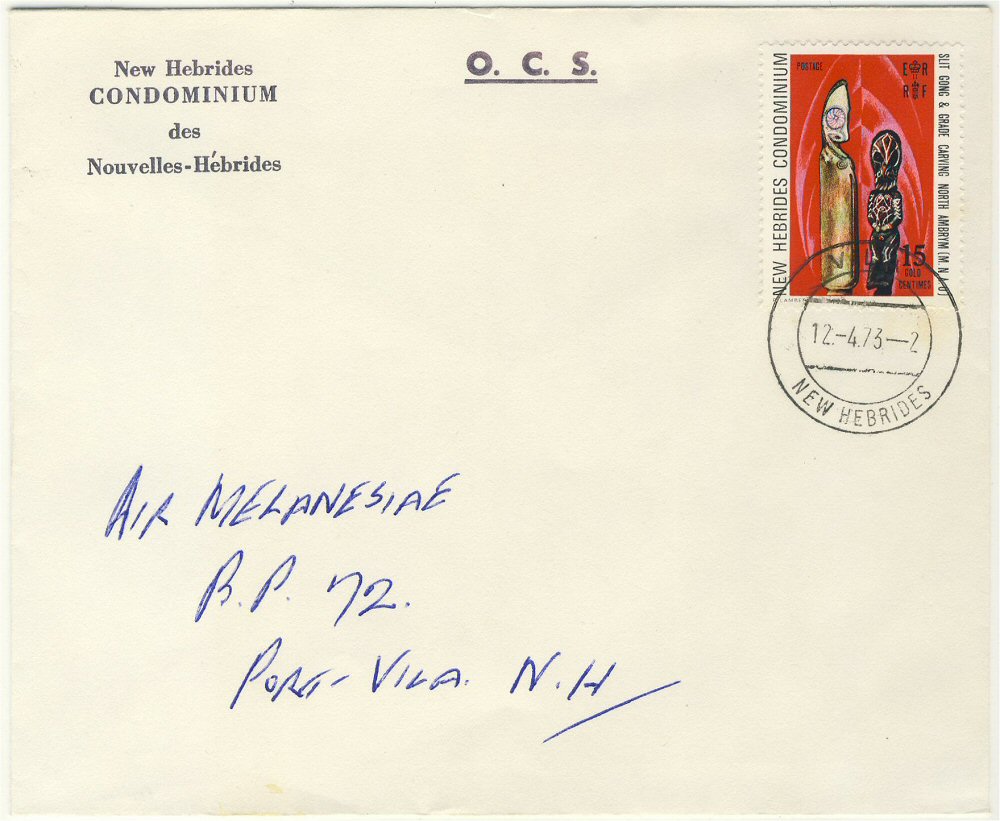 New Hebrides
CONDOMINIUM
des
Nouvelles-Hébrides
O. C. S.
NEW HEBRIDES CONDOMINIUM
POSTAGE
E R
R F
SLIT GONG & GRADE CARVING NORTH AMBRYM (M.N.A.O)
15
GOLD
CENTIMES
12.-4.73—2
NEW HEBRIDES
AIR MELANESIAE
B.P. 72.
PORT-VILA. N.H